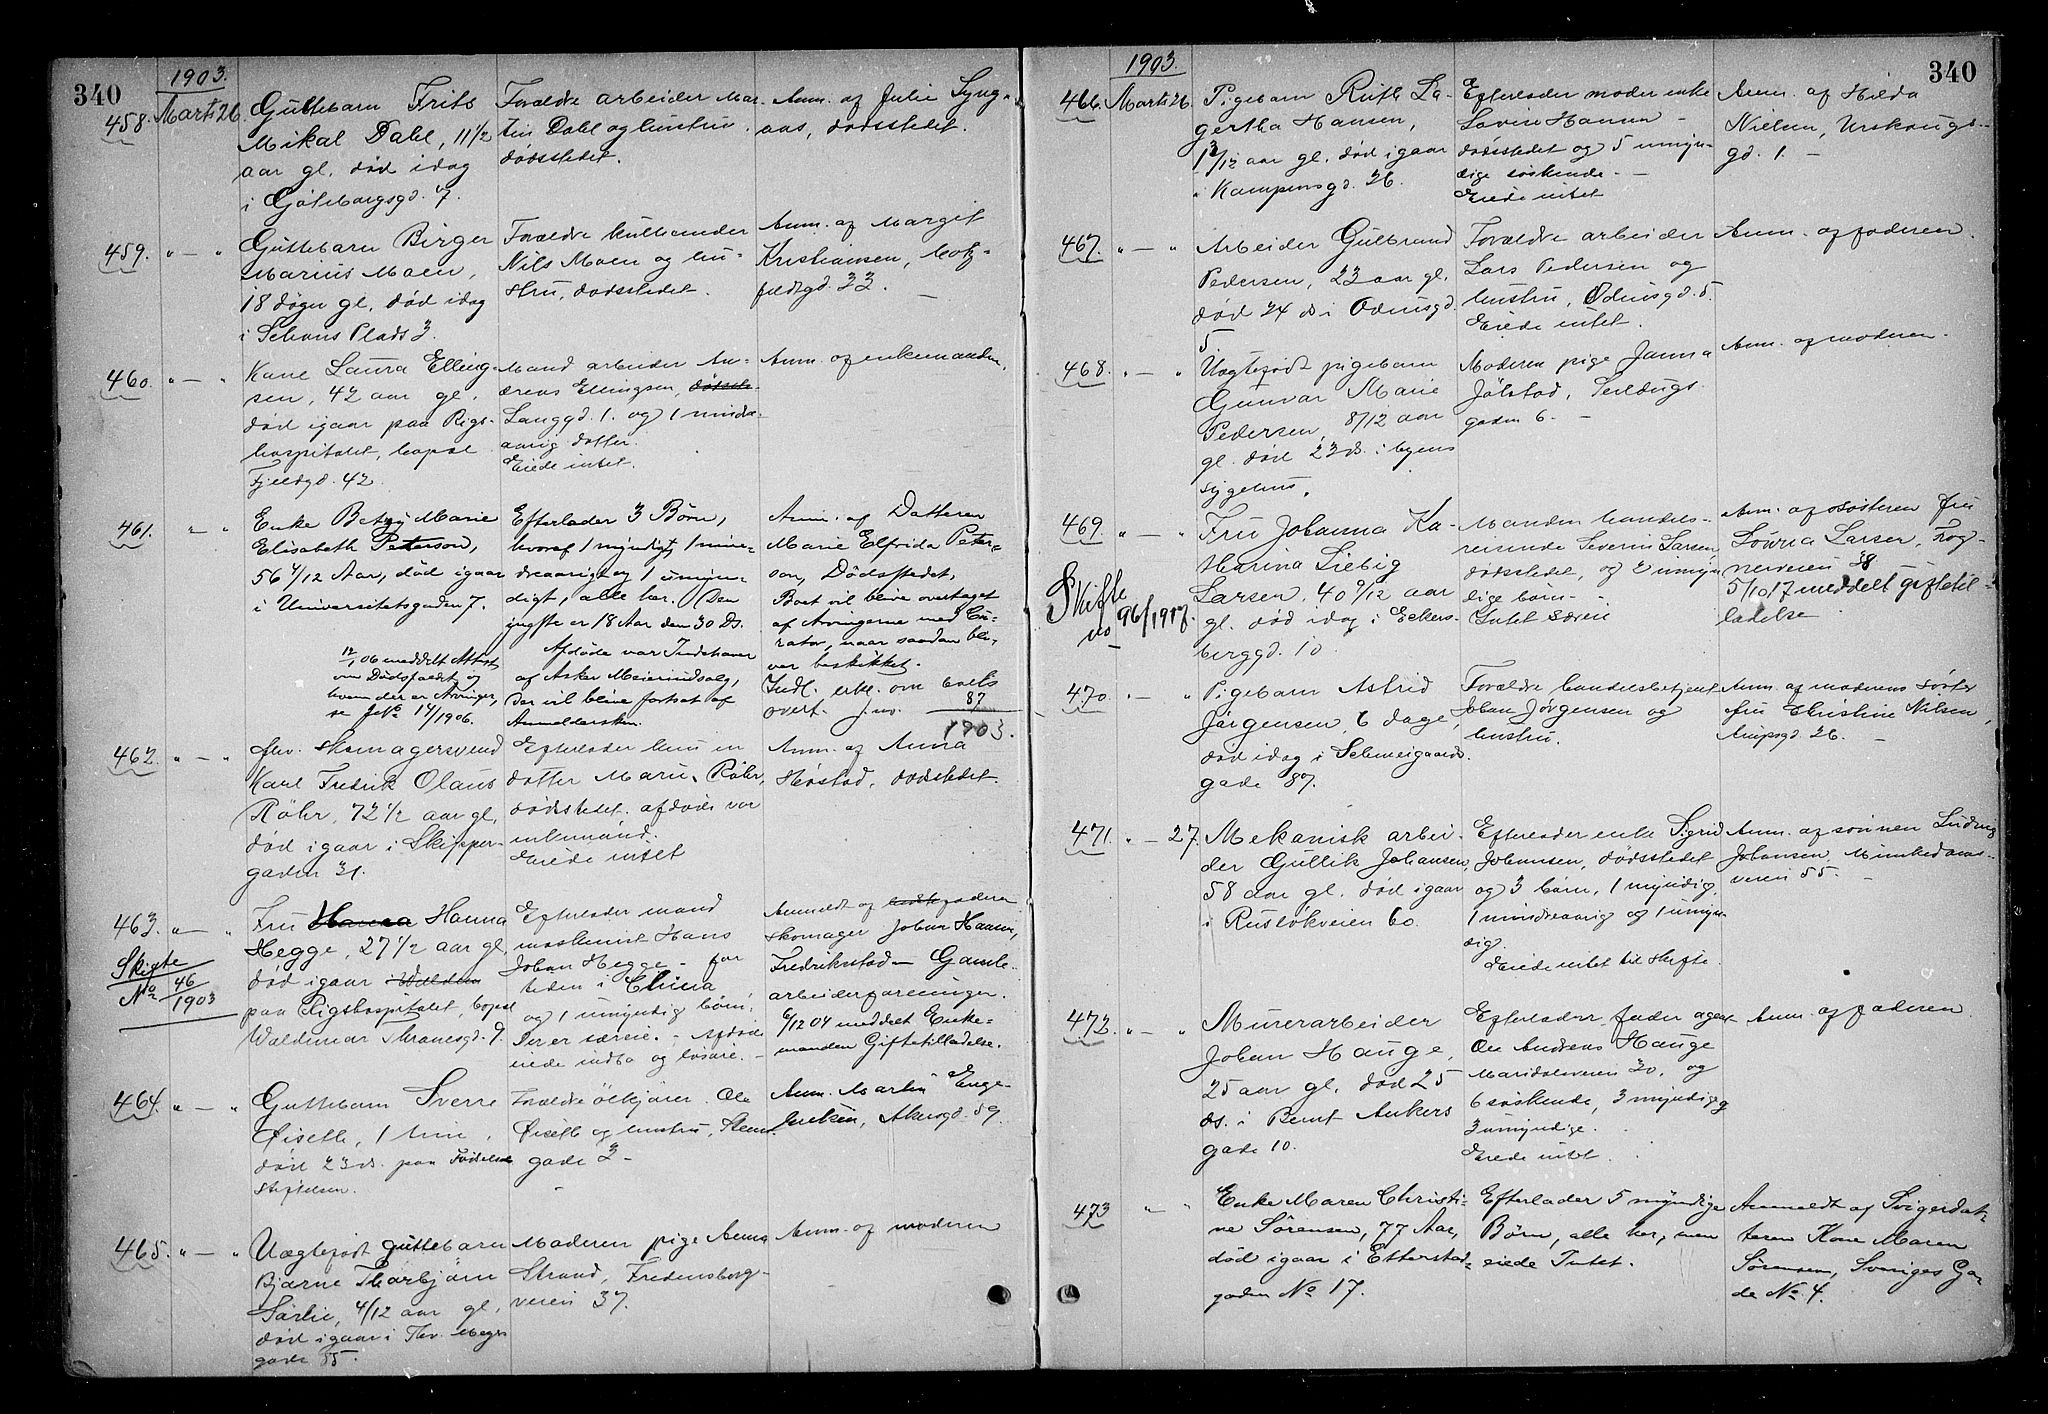 340
1903.
458. Marts 26.
Guttebarn Frits
Mikal Dahl, 11 1/2
aar gl. død idag
i Gøteborgsgd. 7.
Forældre arbeider Mar-
tin Dahl og hustru
dødsstedet.
Anm. af Julie Lyng-
aas, dødsstedet.
459. " — "
Guttebarn Birger
Marius Moen,
18 døgn gl. død idag
i Schous Plads 3.
Forældre
Nils Moen og hu-
stru, dødsstedet.
Anm. af Margit
Kristiansen, Motz-
feldtsgd. 33. —
460. " — "
Kone Laura Elling-
sen, 42 aar gl.
død igaar paa Rigs-
hospitalet, bopæl
Fjeldgd. 42.
Mand arbeider An-
dreas Ellingsen,
Langgd. 1. og 1 mindre-
aarig datter.
Eiede intet.
Anm. af enkemanden.
461. " "
Enke Betzy Marie
Elisabeth Peterson,
56 4/12 Aar, død igaar
i Universitetsgaden 7.
12/1 06 meddelt Attest
om Dødsfaldet og
hvem der er Arvinger,
se J.No 14/1906.
Efterlader 3 Børn,
hvoraf 1 myndigt, 1 min-
dreaarigt og 1 umyn-
digt, alle her. (Den
yngste er 18 Aar den 30 Ds.
Afdøde var Indehaver
af Asker Meieriudsalg,
der vil blive fortsat af
Anmeldersken.
Anm. af Datteren
Marie Elfrida Peter-
son, Dødsstedet.
Boet vil blive overtaget
af Arvingerne med Cu-
rator, naar saadan bli-
ver beskikket.
Indl. erkl. om boets
overt. j.no. 87
1903.
462. " — "
fhv. skomagersvend
Karl Fredrik Olaus
Röhr, 72 1/2 aar gl.
død igaar i Skipper-
gaden 31.
Efterlader kun en
datter Marie Röhr,
dødsstedet. afdøde var
enkemand.
Eiede intet
Anm. af Anna
Høstad, dødsstedet.
463. " — "
Skifte
No 46
1903
Fru Hanna Hanna
Hegge, 27 1/2 aar gl.
død igaar
paa Rigshospitalet, bopæl
Waldemar Thranesgd. 9.
Efterlader mand
maskinist Hans
Johan Hegge - for
tiden i China
og 1 umyndig barn.
Der er særeie. - Afdøde
eiede indbo og løsøre. —
Anmeldt af faderen
skomager Johan Hansen,
Fredriksstad - Gamle
arbeiderforeningen.
6/12 04 meddelt Enke-
manden Giftetilladelse.
464. " — "
Guttebarn Sverre
Øiseth, 1 time,
død 23 ds. paa Fødsels-
stiftelsen.
Forældre ølkjører Ole
Øiseth og hustru, Steners-
gade 3 -
Anm. Martin Enge-
bretsen, Akersgd. 59.
465. " — "
Uægtefødt guttebarn
Bjarne Thorbjørn
Sørlie, 4/12 aar gl.
død igaar i Thv. Meyers
gade 85.
Moderen pige Anna
Strand, Fredensborg-
veien 37.
Anm. af moderen
1903.
340
466. Marts 26.
Pigebarn Ruth La-
gertha Hansen,
1 3/12 aar gl. død igaar
i Kampensgd. 26.
Efterlader moder enke
Lovise Hansen -
dødsstedet og 5 umyn-
dige søskende. —
Eiede intet
Anm. af Hilda
Nielsen, Urskougs-
gd. 1. -
467. " — "
Arbeider Gulbrand
Pedersen, 23 aar gl.
død 24 ds i Odinsgd.
5.
Forældre arbeider
Lars Pedersen og
hustru, Odinsgd. 5.
Eiede intet.
Anm. af faderen.
468. " — "
Uægtefødt pigebarn
Gunvor Marie
Pedersen, 8/12 aar
gl. død 23 ds. i byens
sygehus.
Moderen pige Janna
Jølstad, Seildugs-
gaden 6. -
Anm. af moderen.
469. " — "
Skifte
no 96/1917.
Fru Johanna Ka-
tharina Liebig
Larsen, 40 9/12 aar
gl. død idag i Eckers-
berggd. 10.
Manden handels-
reisende Severin Larsen,
dødsstedet, og 2 umyn-
dige barn. -
Intet særeie
Anm. af søsteren fru
Lovisa Larsen, Frog-
nerveien 38
5/10 17 meddelt giftetil-
ladelse
470. " — "
Pigebarn Astrid
Jørgensen, 6 dage,
død idag i Schweigaards-
gade 87.
Forældre handelsbetjent
Johan Jørgensen og
hustru.
Anm. af moderens søster
fru Christine Nilsen,
Arupsgd. 26. —
471. " — 27.
Mekanisk arbei-
der Gullik Johansen,
58 aar gl. død igaar
i Ruseløkveien 60.
Efterlader enke Sigrid
Johansen, dødsstedet
og 3 børn, 1 myndig,
1 mindreaarig og 1 umyn-
dig.
Eiede intet til skifte.
Anm. af sønnen Ludvig
Johansen, Munkedams-
veien 55. —
472. " — "
Murerarbeider
Johan Hauge,
25 aar gl. død 25
ds. i Bernt Ankers
gade 10.
Efterlader fader agent
Ole Andreas Hauge
Maridalsveien 30, og
6 søskende, 3 myndig og
3 umyndige.
Eiede intet.
Anm. af faderen
473 " "
Enke Maren Christi-
ne Sørensen, 77 Aar,
død igaar i Etterstad-
gaden No 17.
Efterlader 5 myndige
Børn, alle her, men
eiede Intet.
Anmeldt af Svigerdat-
teren Kone Maren
Sørensen, Sveriges Ga-
de No 4.